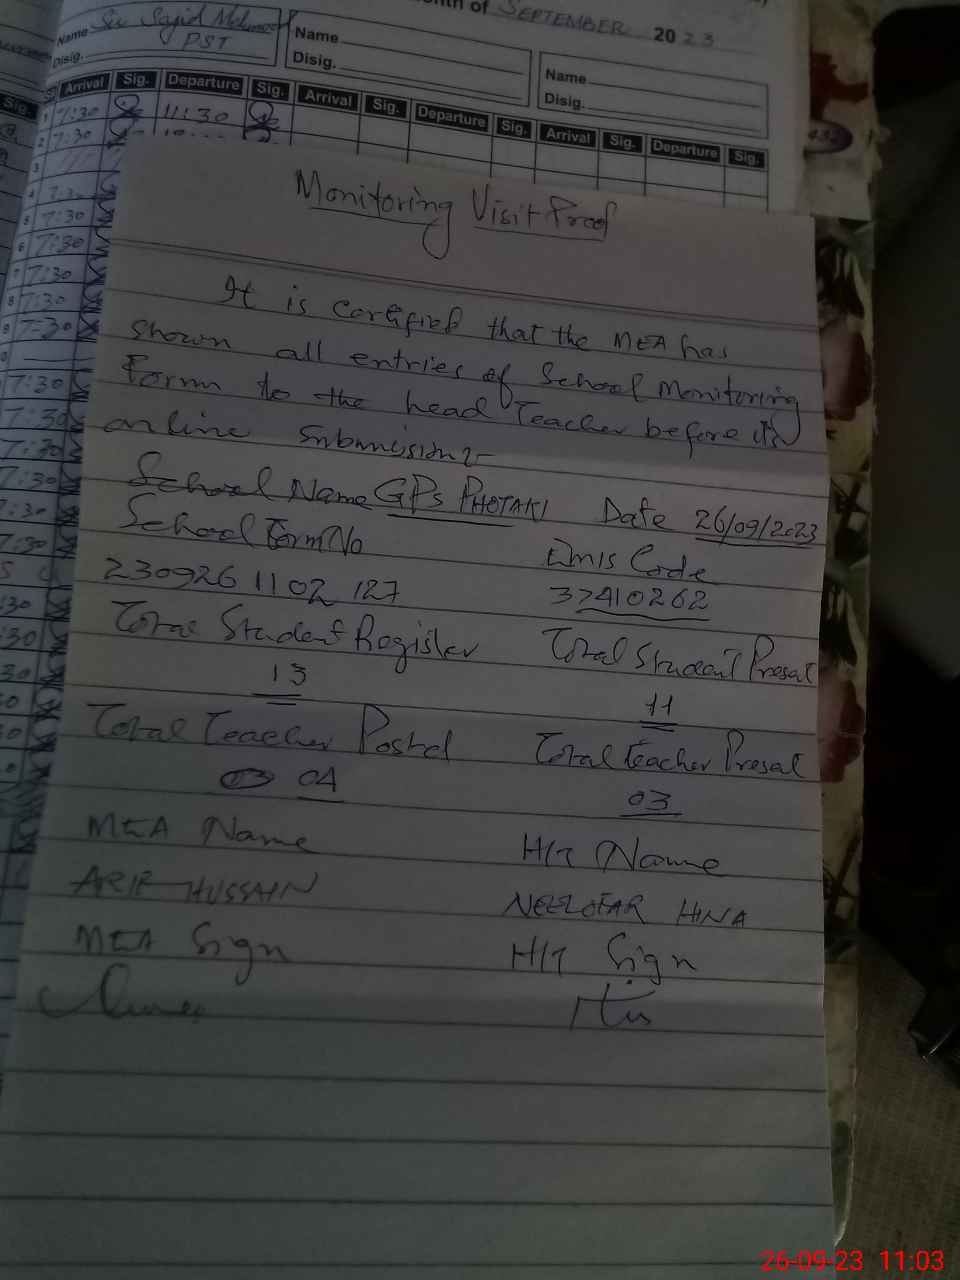 nth of SEPTEMBER 2023
Name Sir Sajid Mehmood
Disig. PST
Name
Disig.
Name
Disig.
Arrival Sig. Departure Sig. Arrival Sig. Departure Sig. Arrival Sig. Departure Sig.
1 7:30 11:30
2 7:30
3
4
5 7:30
6 7:30
7 7:30
8 7:30
9 7:30
7:30
7:30
7:30
7:30
7:30
7:30
Monitoring Visit Proof
It is certified that the MEA has
shown all entries of School Monitoring
Form to the head Teacher before its
online submission:-
School Name GPS PHOTAKI Date 26/09/2023
School Form No Emis Code
230926 1102 127 37410262
Total Student Register Total Student Presat
13 11
Total Teacher Posted Total Teacher Presat
04 03
MEA Name H/T Name
ARIF HUSSAIN NEELOFAR HINA
MEA Sign H/T Sign
26-09-23 11:03